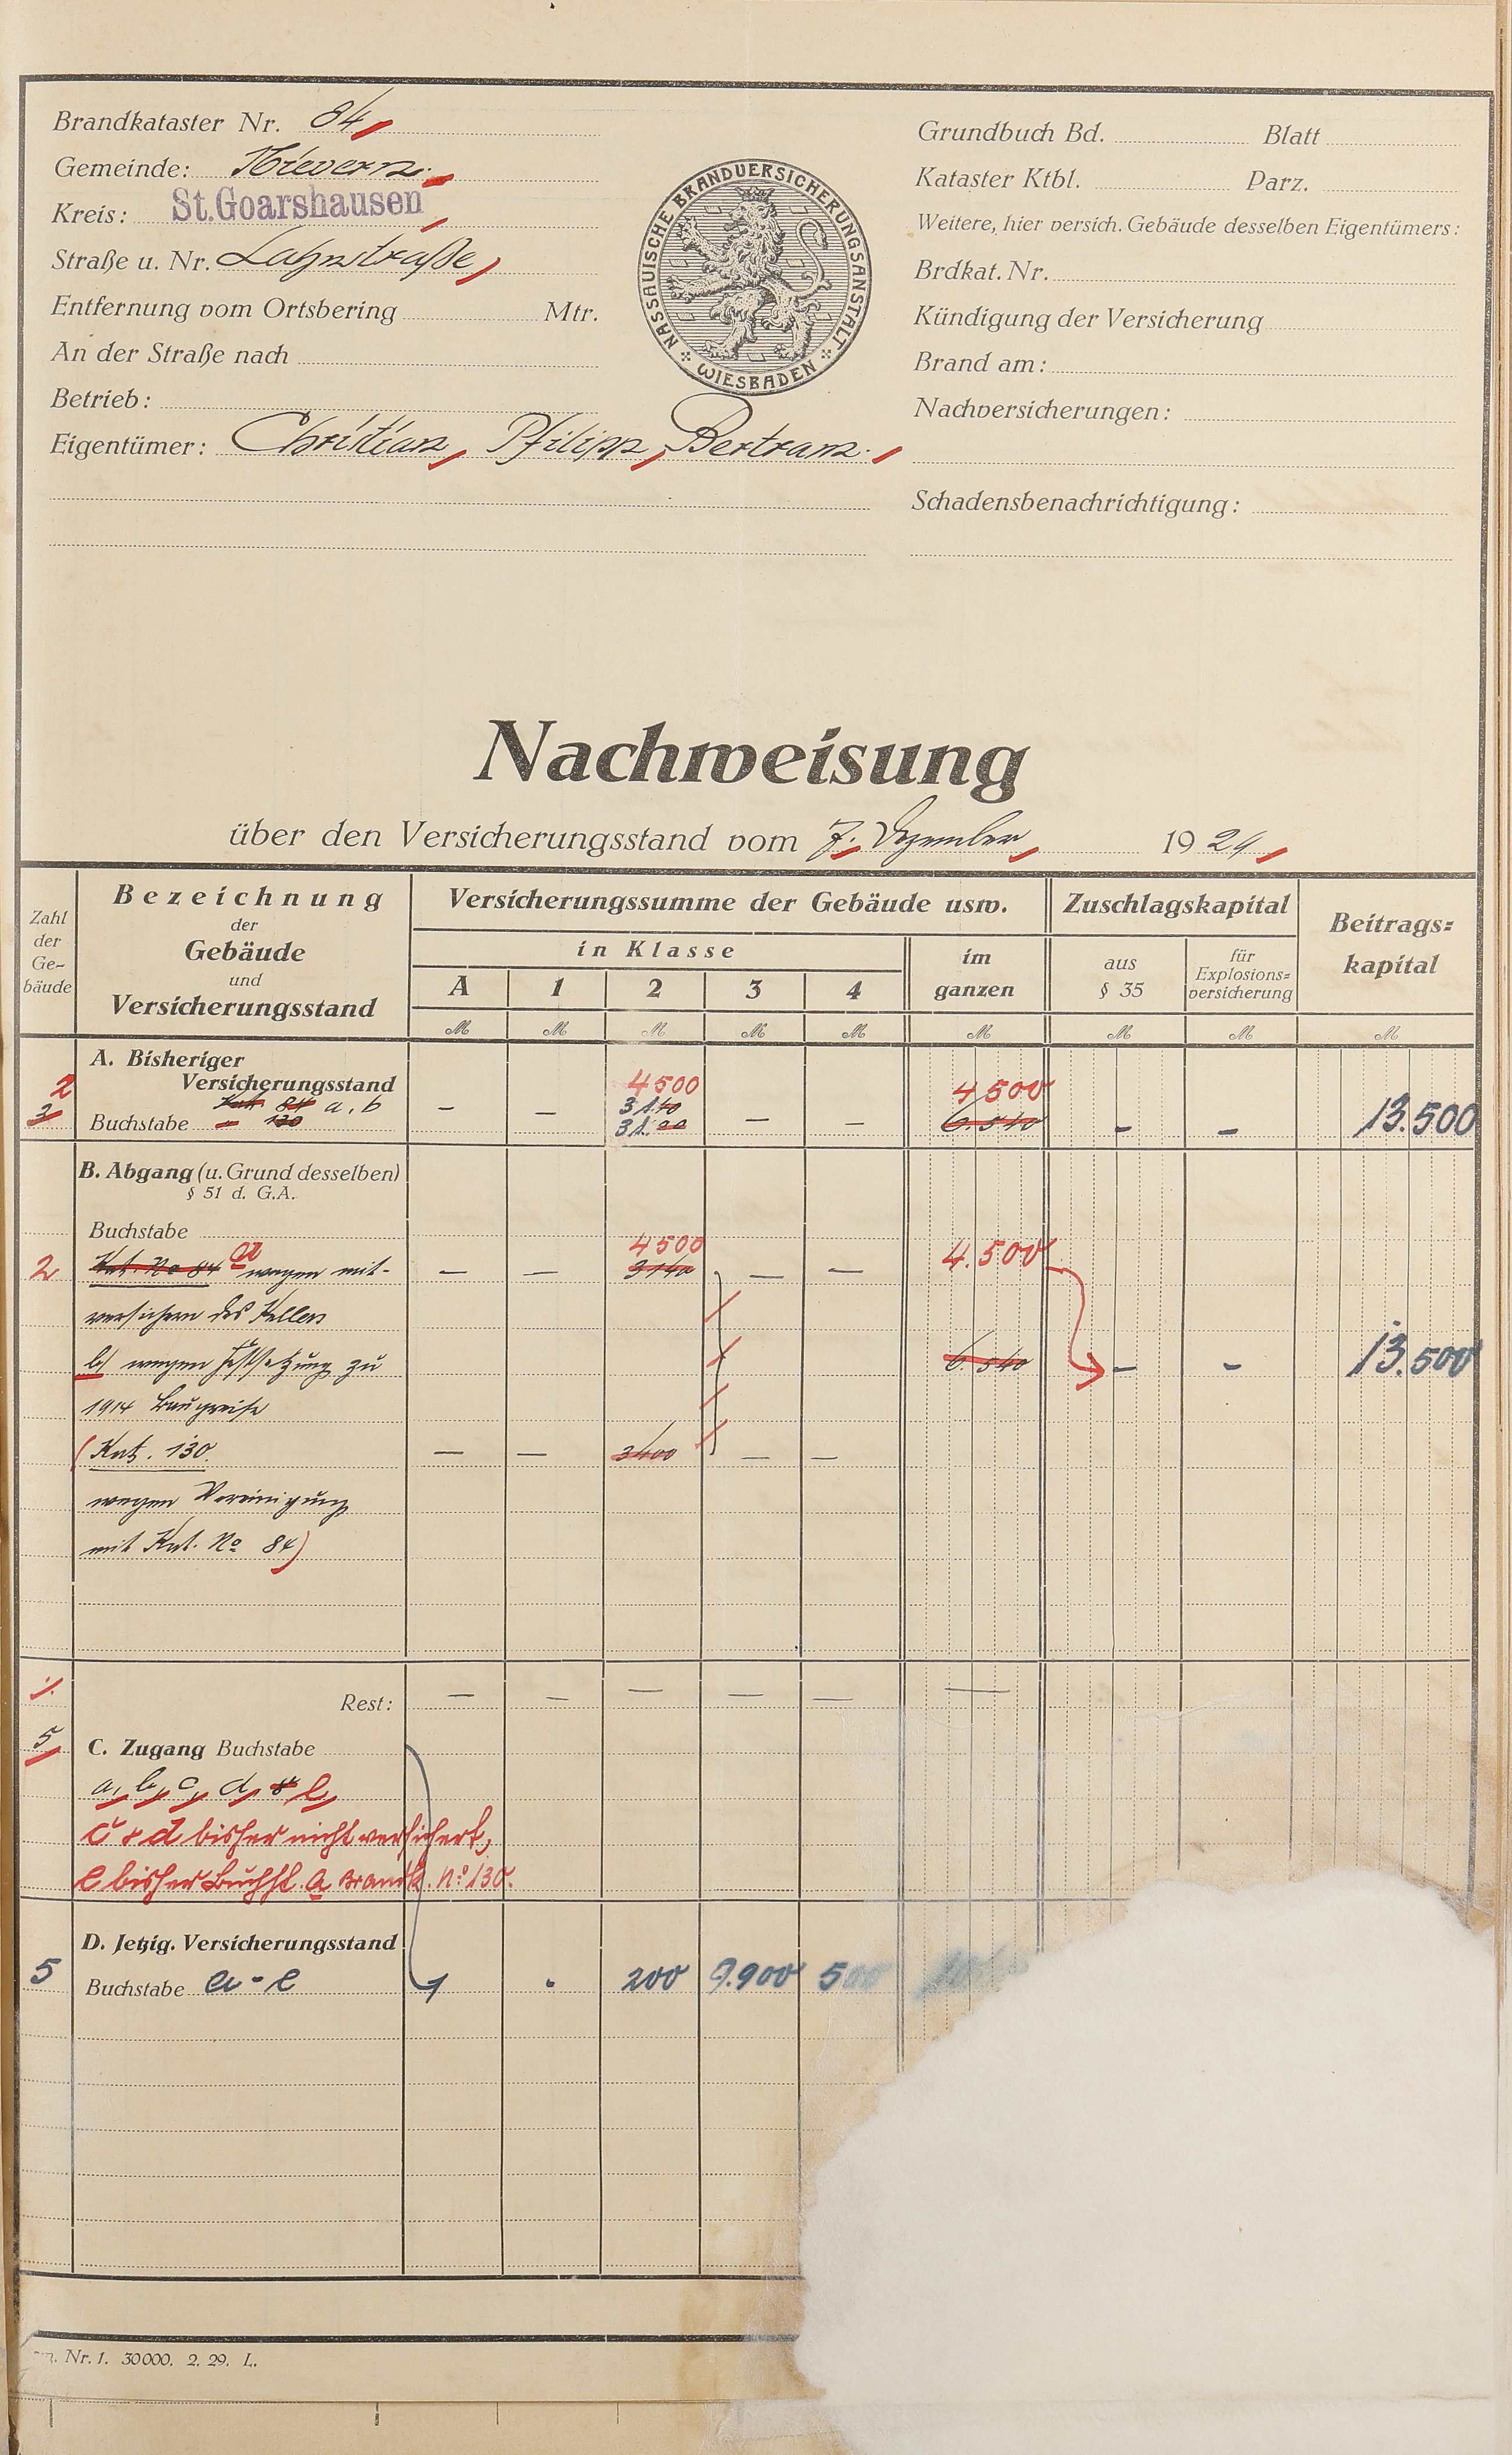 Brandkataster Nr. 84
Gemeinde: Nievern.
Kreis: St. Goarshausen
Straße u. Nr. Lahnstraße
Entfernung vom Ortsbering Mtr.
An der Straße nach
Betrieb:
Eigentümer: Christian, Philipp, Bertram.
NASSAUISCHE BRANDVERSICHERUNGSANSTALT
WIESBADEN
Grundbuch Bd. Blatt
Kataster Ktbl. Parz.
Weitere, hier versich. Gebäude desselben Eigentümers:
Brdkat. Nr.
Kündigung der Versicherung
Brand am:
Nachversicherungen:
Schadensbenachrichtigung:
Nachweisung
über den Versicherungsstand vom 7. Dezember 1929
Zahl der Ge-bäude
Bezeichnung der Gebäude und Versicherungsstand
Versicherungssumme der Gebäude usw.
in Klasse
A 1 2 3 4
im ganzen
Zuschlagskapital
aus § 35
für Explosions-versicherung
Beitrags-kapital
M M M M M M M M M
A. Bisheriger
2 Versicherungsstand 4500 4500
3 Kat. 84 a, b
Buchstabe 130 — — — — 6.540 - - 13.500
B. Abgang (u. Grund desselben)
§ 51 d. G.A.
Buchstabe 4500 4.500
2 Kat. No 84 a wegen mit- — — 3140 — —
versichern des Kellers
b) wegen Festsetzung zu 6.540 - - 13.500
1914 Baupreise
(Kat. 130. — — 3400 — —
wegen Vereinigung
mit Kat. No 84)
Rest: — — — — — —
5 C. Zugang Buchstabe
a, b, c, d, e,
c + d bisher nicht versichert,
e bisher Buchst. a Brandk. No 130.
D. Jetzig. Versicherungsstand
5 Buchstabe a - e 200 9.900 500
Nr. 1. 30000. 2. 29. L.